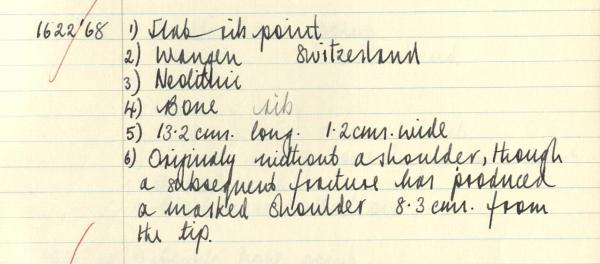 1622/68 1) Slab rib point
2) Wangen Switzerland
3) Neolithic
4) Bone rib
5) 13.2 cms. long. 1.2 cms. wide
6) Originaly without a shoulder, though
a subsequent fracture has produced
a marked shoulder 8.3 cms. from
the tip.